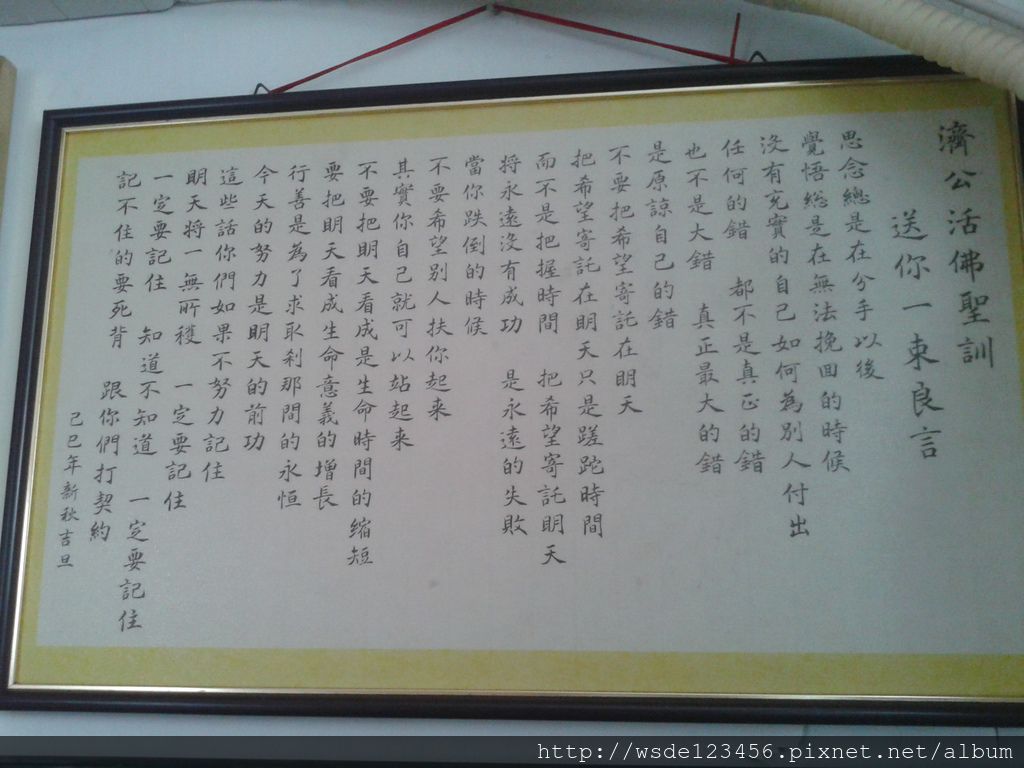 濟公活佛聖訓
送你一束良言
思念總是在分手以後
覺悟總是在無法挽回的時候
沒有充實的自己如何為別人付出
任何的錯 都不是真正的錯
也不是大錯 真正最大的錯
是原諒自己的錯
不要把希望寄託在明天
把希望寄託在明天只是蹉跎時間
而不是把握時間 把希望寄託明天
将永遠沒有成功 是永遠的失敗
當你跌倒的時候
不要希望別人扶你起来
其實你自己就可以站起来
不要把明天看成是生命時間的缩短
要把明天看成生命意義的增長
行善是為了求取刹那間的永恒
今天的努力是明天的前功
這些話你們如果不努力記住
明天将一無所穫 一定要記住
一定要記住 知道不知道 一定要記住
記不住的要死背 跟你們打契約
己巳年新秋吉旦
http://wsde123456.pixnet.net/album